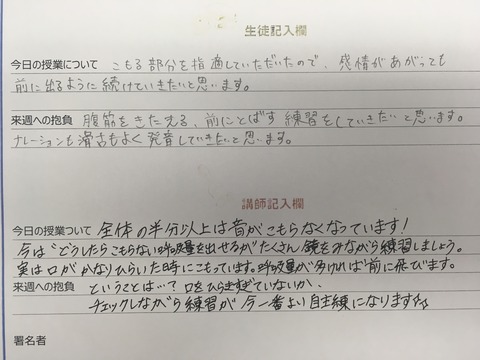 生徒記入欄
今日の授業について こもる部分を指適していただいたので、感情があがっても
前に出るように続けていきたいと思います。
来週への抱負 腹筋をきたえる、前にとばす練習をしていきたいと思います。
ナレーションも滑舌もよく発音していきたいと思います。
講師記入欄
今日の授業ついて 全体の半分以上は音がこもらなくなっています!
今は"どうしたらこもらない呼吸量を出せるか"たくさん鏡をみながら練習しましょう。
実は口がかなりひらいた時にこもっています。呼吸量が多ければ前に飛びます。
来週への抱負 ということは…?口をひらきすぎていないか、
チェックしながら練習が今一番よい自主練になります
署名者